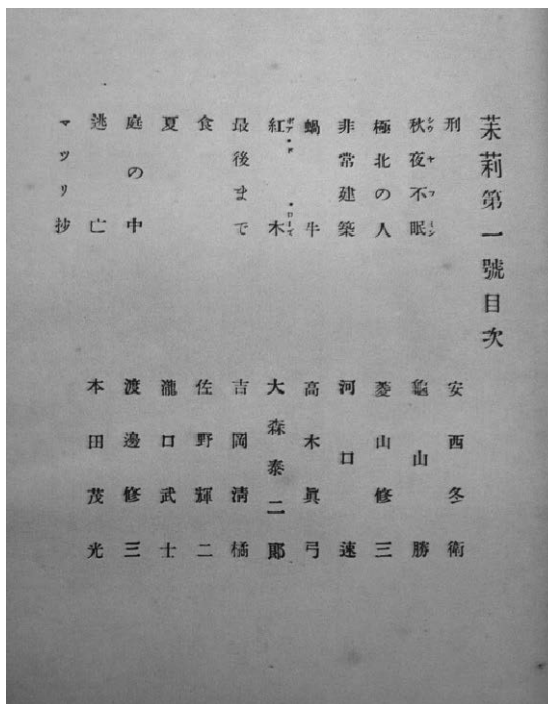 茉莉第一號目次
刑 安西冬衛
秋夜不眠 龜山勝
極北の人 菱山修三
非常建築 河口速
蝸牛 高木眞弓
紅木 大森泰二郎
最後まで 吉岡淸橘
食 佐野輝二
夏 瀧口武士
庭の中 渡邊修三
逃亡 本田茂光
マツリ抄